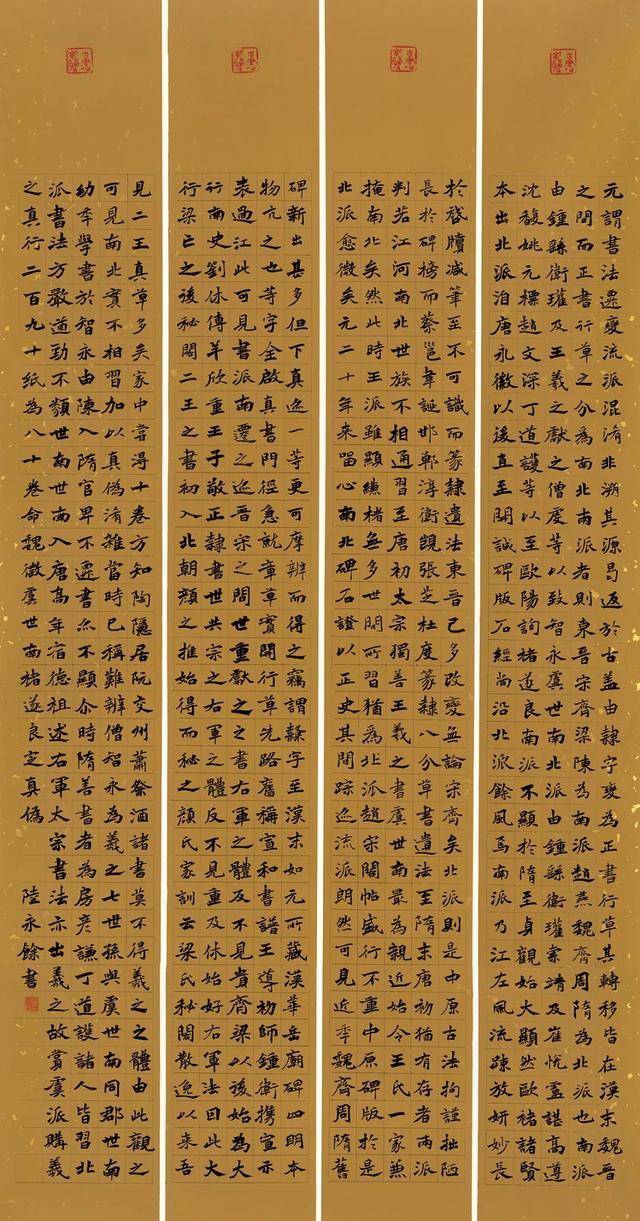 元謂書法遷變流派混淆非溯其源曷返於古蓋由隸字變為正書行草其轉移皆在漢末魏晉
之間而正書行草之分為南北兩派者則東晉宋齊梁陳為南派趙燕魏齊周隋為北派也南派
由鍾繇衛瓘及王羲之獻之僧虔等以致智永虞世南北派由鍾繇衛瓘索靖及崔悅盧諶高遵
沈馥姚元標趙文深丁道護等以至歐陽詢褚遂良南派不顯於隋至貞觀始大顯然歐褚諸賢
本出北派洎唐永徽以後直至開誠碑版石經尚沿北派餘風焉南派乃江左風流疎放妍妙長
於啓牘減筆至不可識而篆隸遺法東晉已多改變無論宋齊矣北派則是中原古法拘謹拙陋
長於碑榜而蔡邕韋誕邯鄲淳衛覬張芝杜度篆隸八分草書遺法至隋末唐初猶有存者兩派
判若江河南北世族不相通習至唐初太宗獨善王羲之書虞世南最為親近始令王氏一家兼
掩南北矣然此時王派雖顯縑楮無多世間所習猶為北派趙宋閣帖盛行不重中原碑版於是
北派愈微矣元二十年來留心南北碑石證以正史其間踪迹流派朗然可見近季魏齊周隋舊
碑新出甚多但下真迹一等更可摩辨而得之竊謂隸字至漢末如元所藏漢華岳廟碑四明本
物亢之也等字全啟真書門徑急就章草實開行草先路舊稱宣和書譜王導初師鍾衛攜宣示
表過江此可見書派南遷之迹晉宋之間世重獻之之書右軍之體反不見貴齊梁以後始為大
行南史劉休傳羊欣重王子敬正隸書世共宗之右軍之體反不見重及休始好右軍法因此大
行梁亡之後秘閣二王之書初入北朝顏之推始得而秘之顏氏家訓云梁氏秘閣散逸以來吾
見二王真草多矣家中嘗得十卷方知陶隱居阮交州蕭祭酒諸書莫不得羲之之體由此觀之
可見南北實不相習加以真偽淆雜當時已稱難辨僧智永為羲之七世孫與虞世南同郡世南
幼季學書於智永由陳入隋官卑不遷書亦不顯尒時隋善書者為房彥謙丁道護諸人皆習北
派書法方嚴遒勁不類世南世南入唐高年宿德祖述右軍太宗書法亦出羲之故賞虞派購羲
之真行二百九十紙為八十卷命魏徵虞世南褚遂良定真偽
陸永餘書